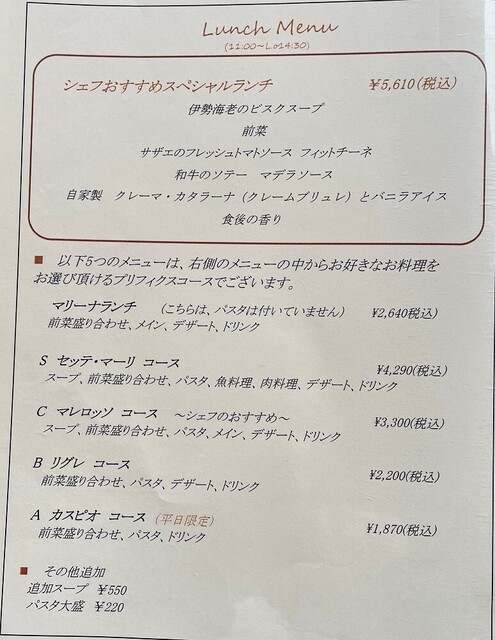 Lunch Menu
(11:00～Lo14:30)
シェフおすすめスペシャルランチ ￥5,610(税込)
伊勢海老のビスクスープ
前菜
サザエのフレッシュトマトソース フィットチーネ
和牛のソテー マデラソース
自家製 クレーマ・カタラーナ（クレームブリュレ）とバニラアイス
食後の香り
■ 以下5つのメニューは、右側のメニューの中からお好きなお料理を
お選び頂けるプリフィクスコースでございます。
マリーナランチ （こちらは、パスタは付いていません） ¥2,640税込)
前菜盛り合わせ、メイン、デザート、ドリンク
S セッテ・マーリ コース ¥4,290(税込)
スープ、前菜盛り合わせ、パスタ、魚料理、肉料理、デザート、ドリンク
C マレロッソ コース ～シェフのおすすめ～ ¥3,300(税込)
スープ、前菜盛り合わせ、パスタ、メイン、デザート、ドリンク
B リグレ コース ¥2,200(税込)
前菜盛り合わせ、パスタ、デザート、ドリンク
A カスピオ コース (平日限定) ¥1,870(税込)
前菜盛り合わせ、パスタ、ドリンク
■ その他追加
追加スープ ￥550
パスタ大盛 ￥220